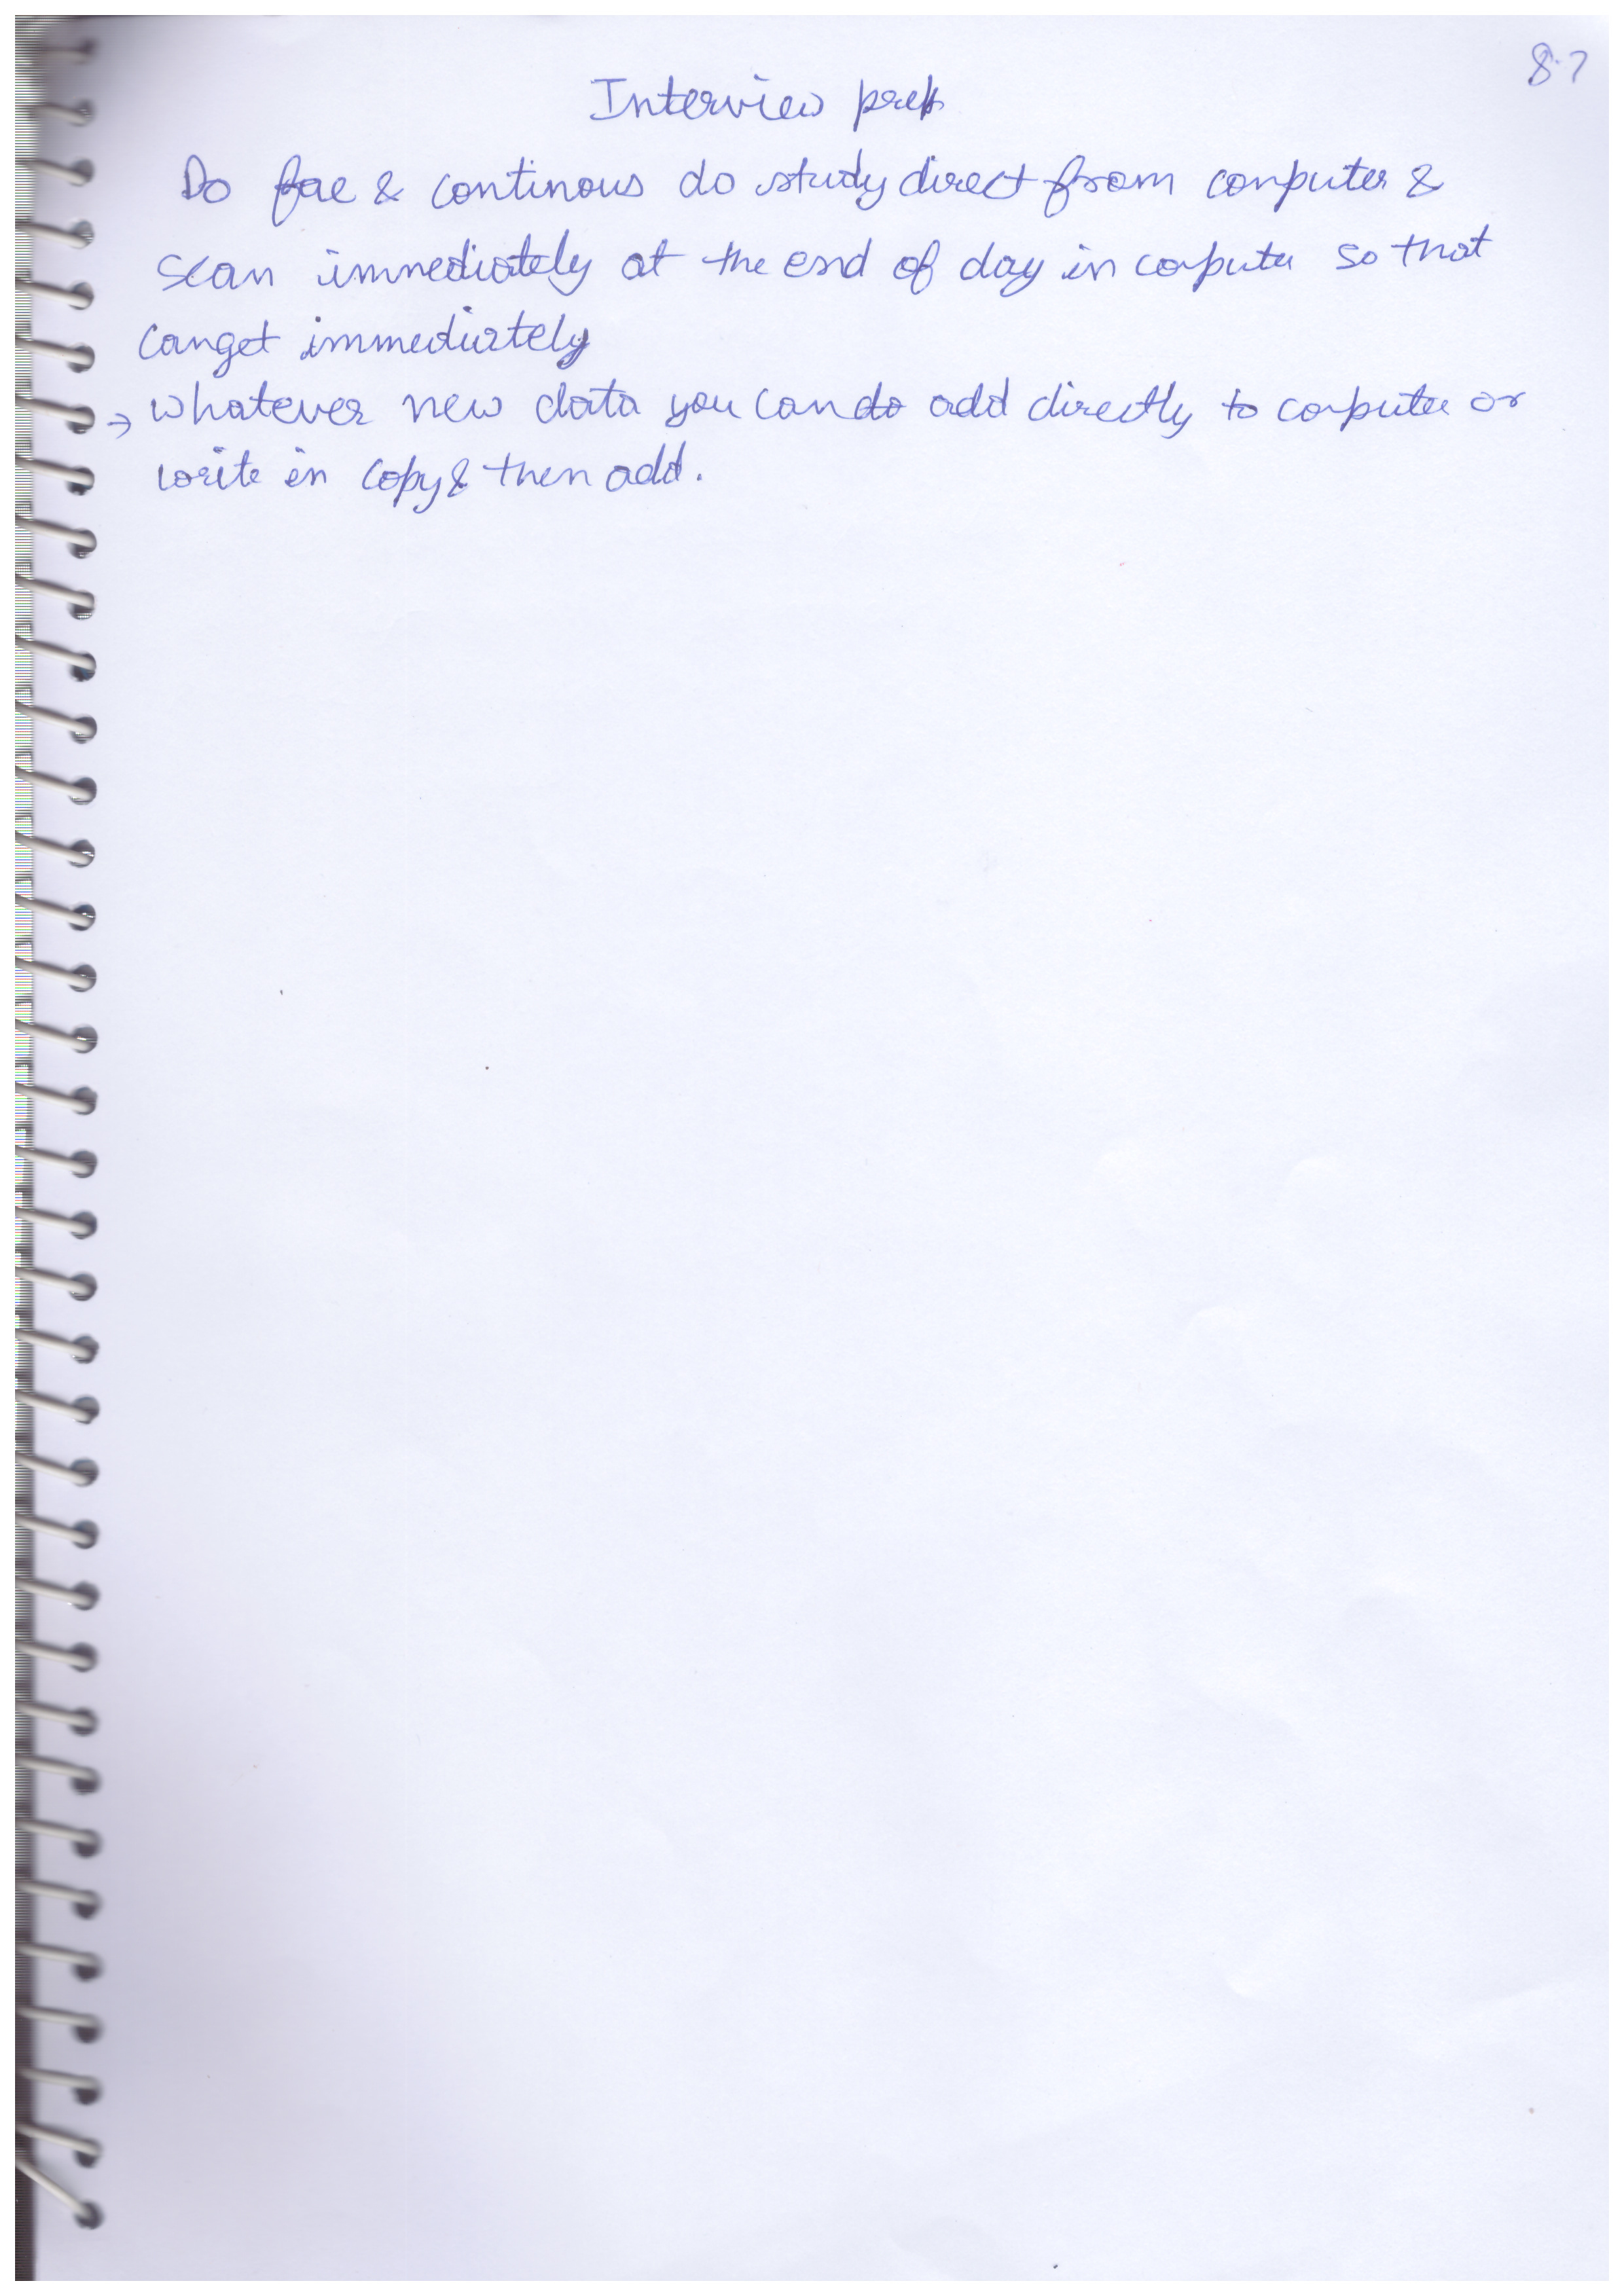 8.7
Interview prep
Do fae & continous do study direct from computer &
scan immediately at the end of day in computer so that
can get immediately
→ whatever new data you can do add directly to computer or
write in copy & then add.